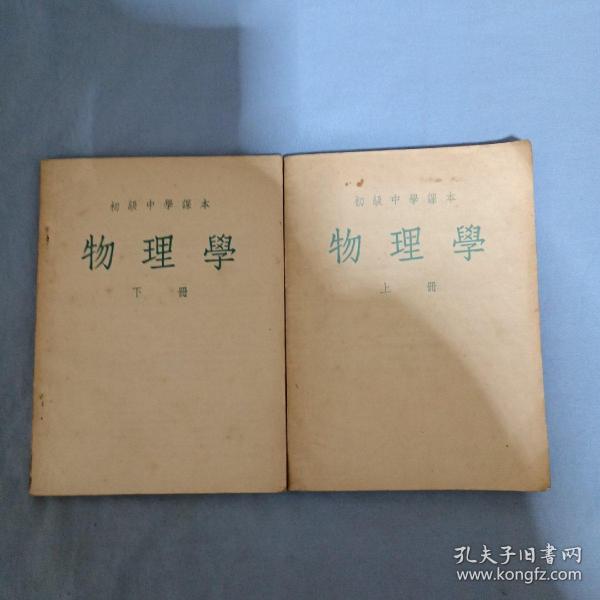 初級中學課本
物理學
下冊
初級中學課本
物理學
上冊
孔夫子旧书网
www.kongfz.com